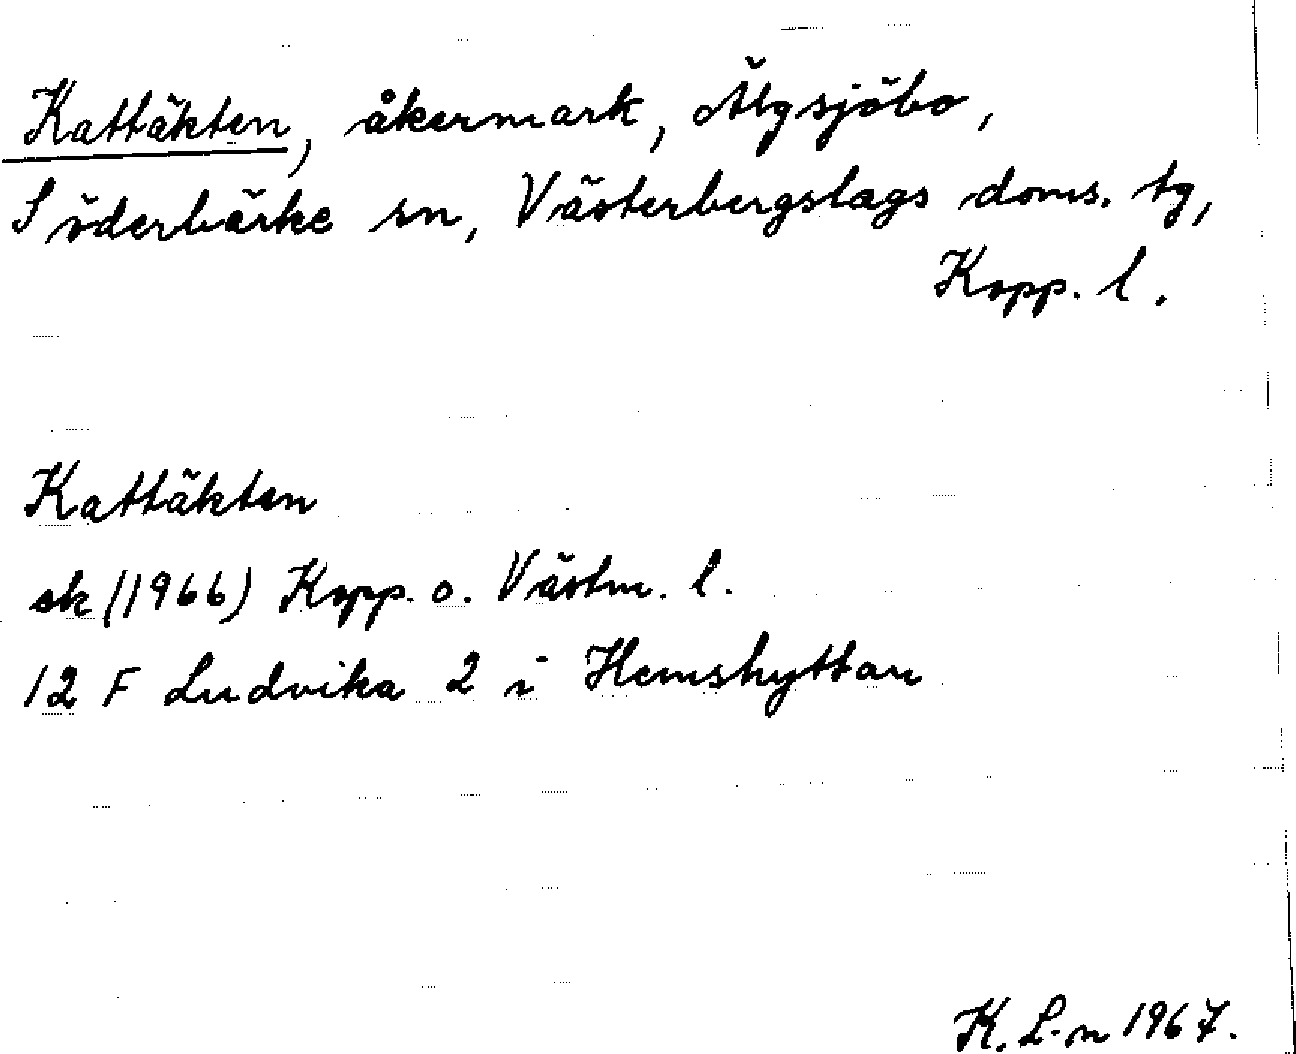 Kattäkten, åkermark, Älgsjöbo,
Söderbärke sn, Västerbergslags doms. tg,
Kopp. l.
Kattäkten
ek (1966) Kopp. o. Västm. l.
12 F Ludvika 2 i Hemshyttan
K. L-n 1967.